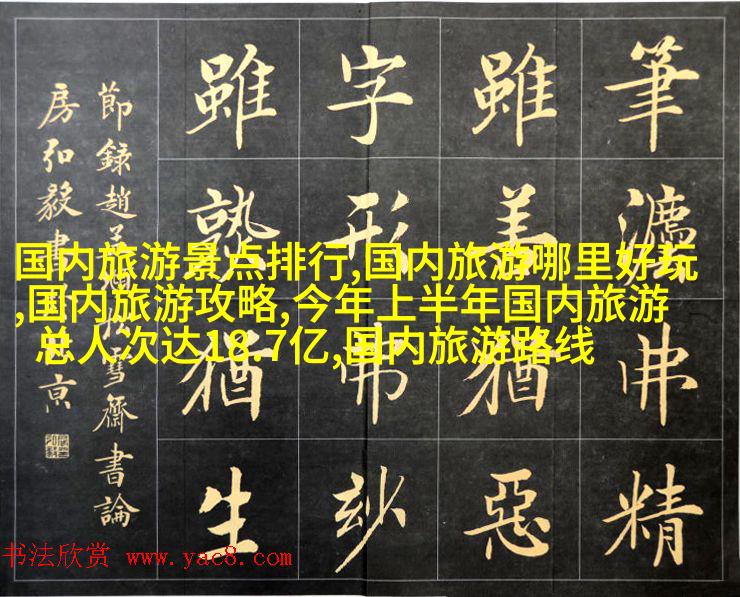 筆灋弗精
雖善猶惡
字形弗妙
雖熟猶生
節錄趙孟頫松雪齋書論
房弘毅書於京
国内旅游景点排行,国内旅游哪里好玩
,国内旅游攻略,今年上半年国内旅游
总人次达18.7亿,国内旅游路线
书法欣赏 www.yac8.com